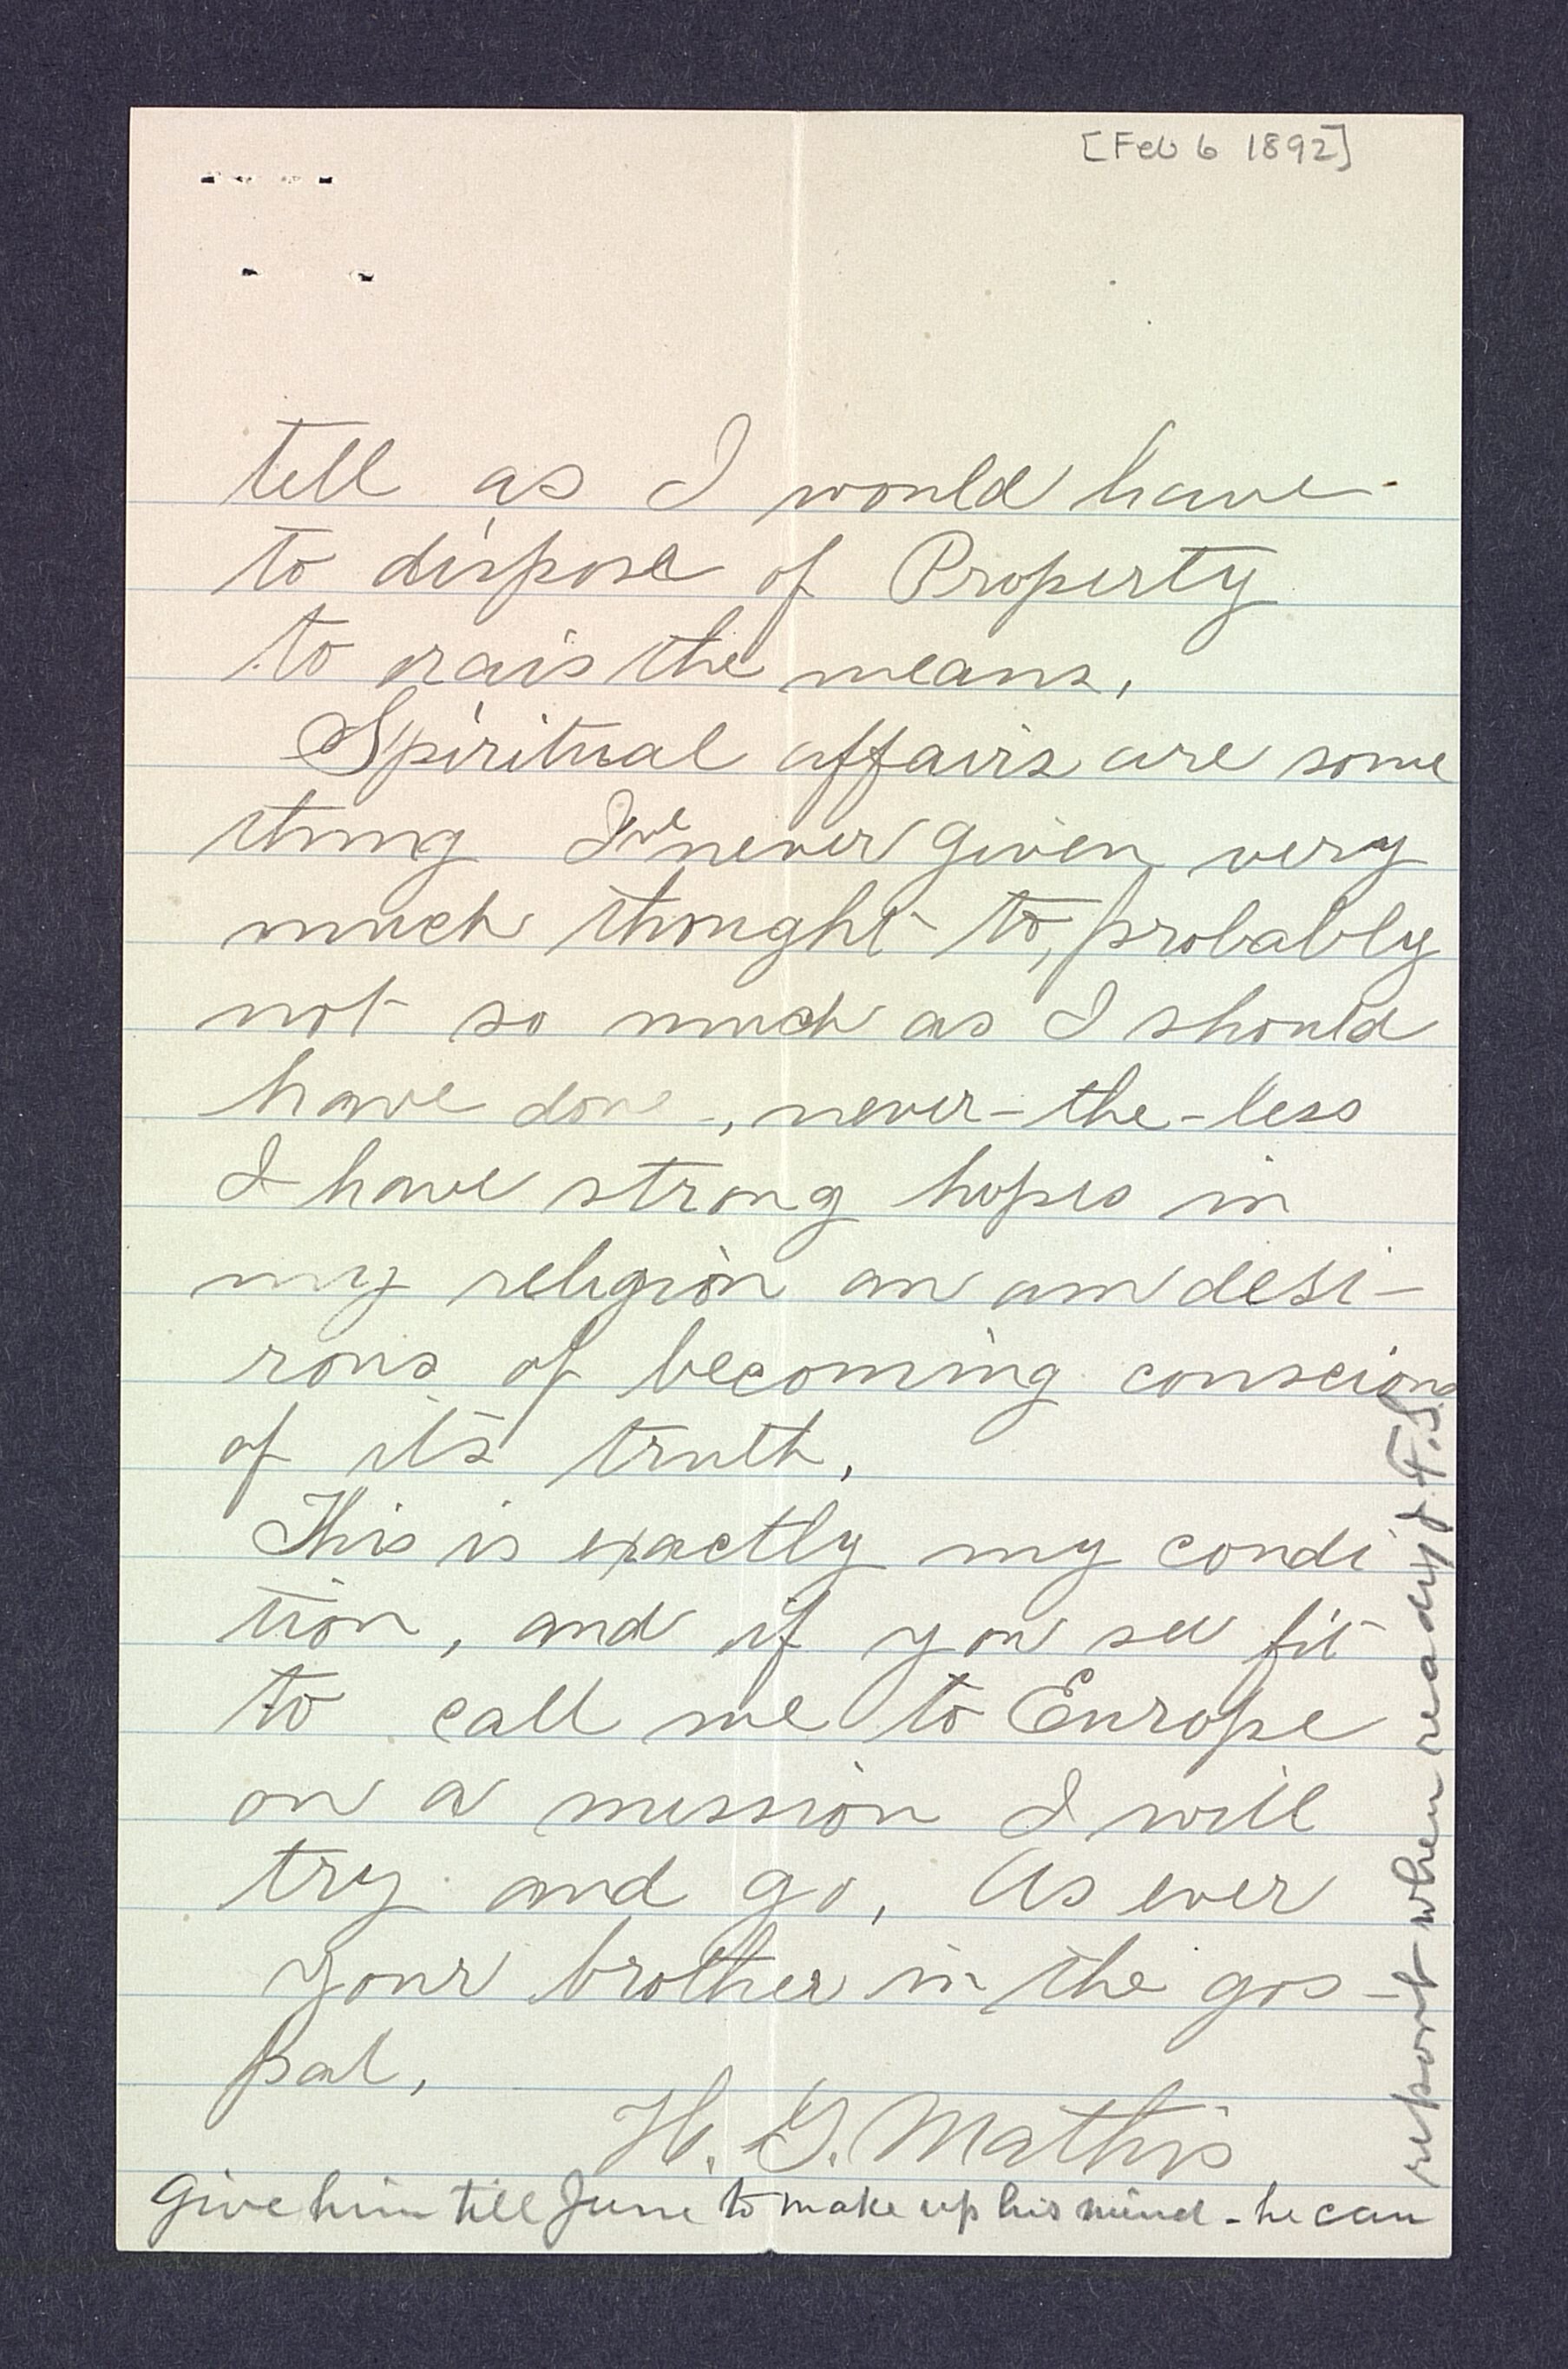 [Feb 6 1892]
tell as I would have
to dispose of Property
to rais the means,
Spiritual affairs are some
thing I've never given very
much thought to, probably
not so much as I should
have done -, never-the-less
I have strong hopes in
my religion an am desi-
rous of becoming conscious
of its truth,
This is exactly my condi
tion, and if you see fit
to call me to Europe
on a mission I will
try and go, As ever
your brother in the gos-
pal,
H. G. Mathis
Give him till June to make up his mind - he can
report when ready J. F. S.